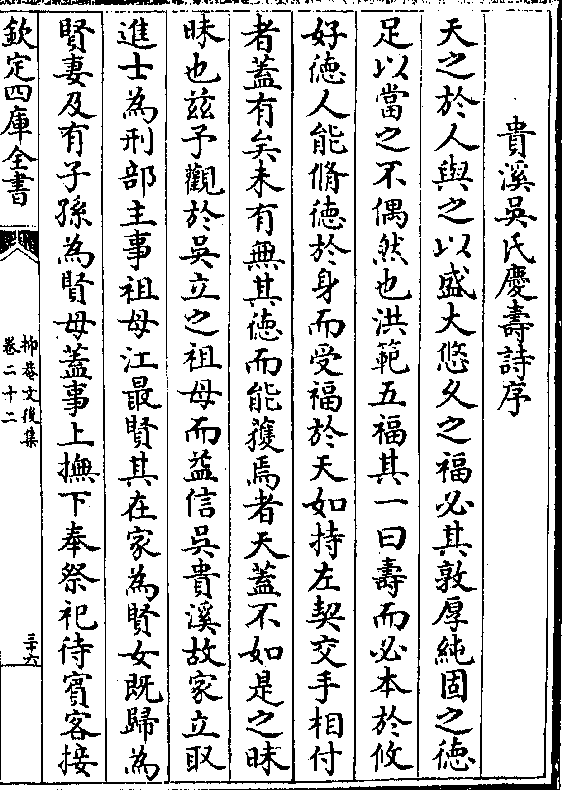 貴溪吳氏慶壽詩序
天之於人與之以盛大悠久之福必其敦厚純固之徳
足以當之不偶然也洪範五福其一曰壽而必本於攸
好徳人能脩徳於身而受福於天如持左契交手相付
者蓋有矣未有無其徳而能獲焉者天蓋不如是之昧
昧也兹予觀於吳立之祖母而益信吳貴溪故家立取
進士為刑部主事祖母江最賢其在家為賢女既歸為
賢妻及有子孫為賢母蓋事上撫下奉祭祀待賔客接
欽定四庫全書
抑菴文後集
卷二十二
三十六